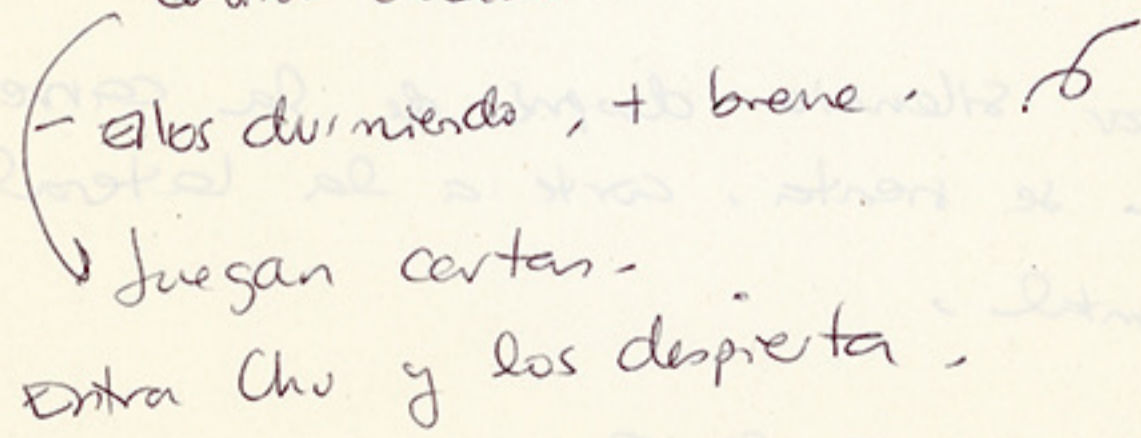 - Ellos durmiendo, + breve.
Juegan cartas.
Entra Chu y los despierta.